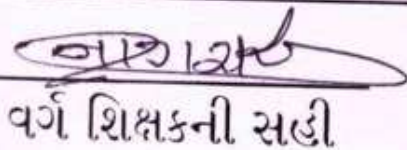 વર્ગ શિક્ષકની સહી